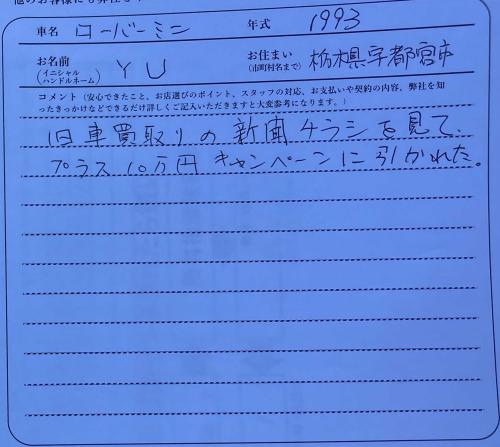 車名 ローバーミニ 年式 1993
お名前 (イニシャル ハンドルネーム) YU お住まい (市町村名まで) 栃木県宇都宮市
コメント (安心できたこと、お店選びのポイント、スタッフの対応、お支払いや契約の内容、弊社を知
ったきっかけなどできるだけ詳しくご記入いただきますと大変参考になります。)
旧車買取りの新聞チラシを見て、
プラス10万円キャンペーンに引かれた。